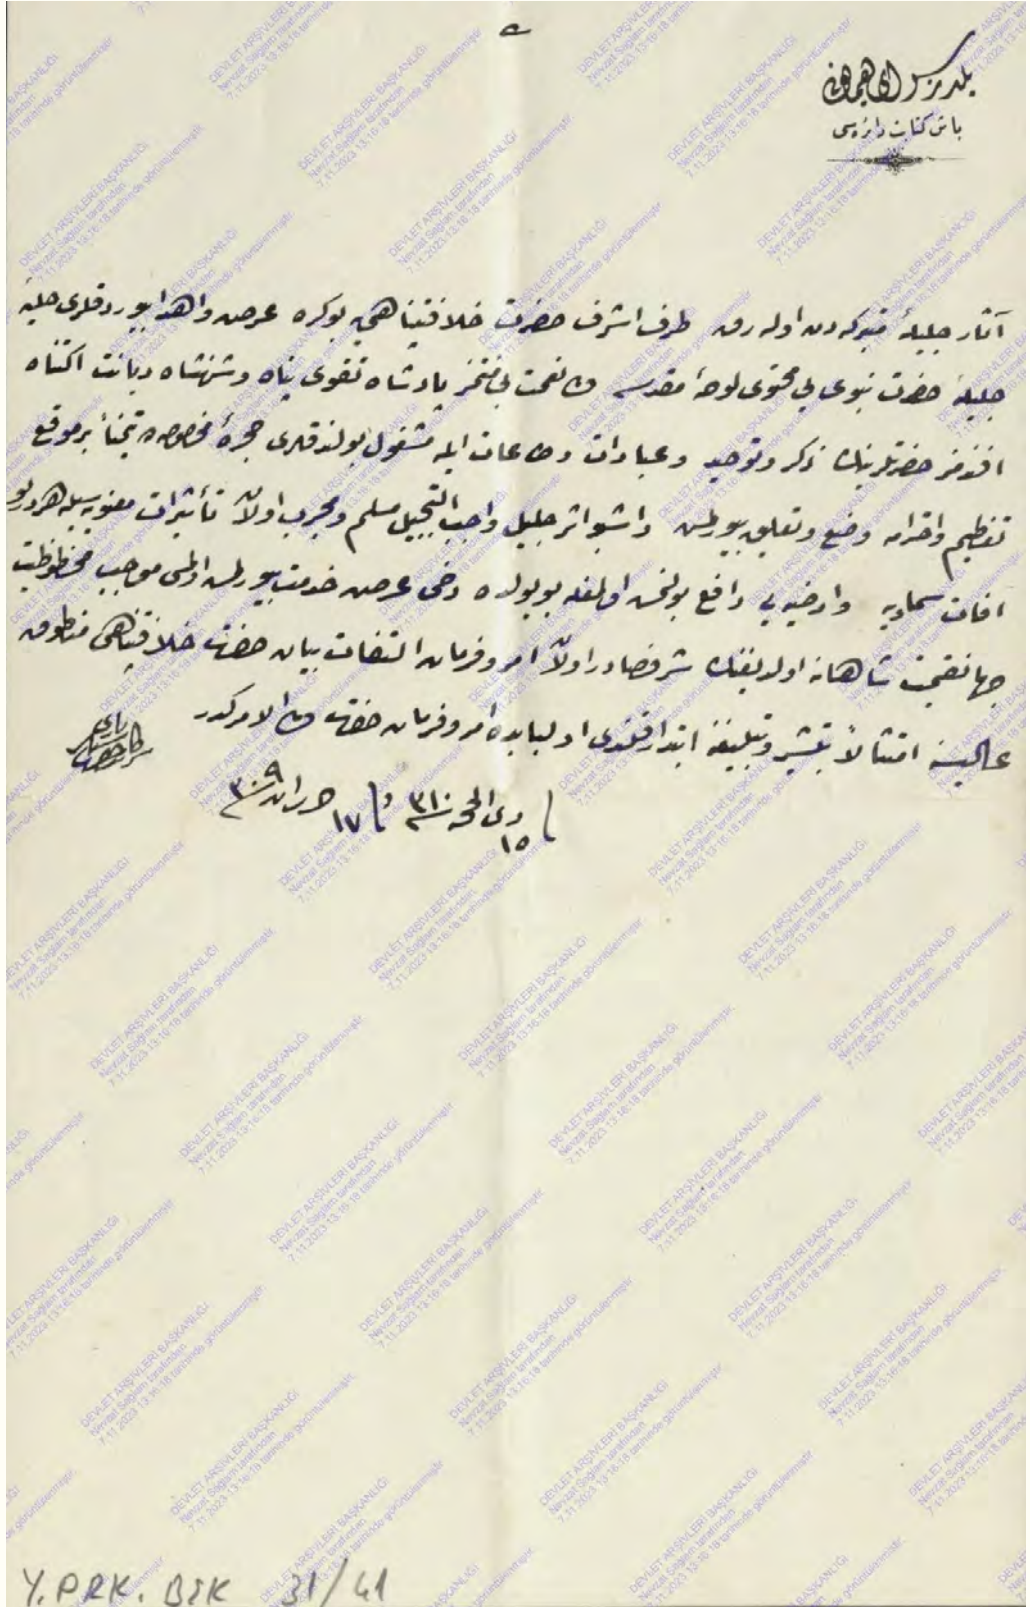 يلديز سراى همايونى
باش كتابت دائره سى
آثار جليلهٔ متبركه دن اوله رق طرف اشرف حضرت خلافتپناهى يه بو كره عرض و اهدا بيوردقلرى حليهٔ
جليلهٔ حضرت نبوى يى محتوى لوحهٔ مقدسه پادشاه تقوى پناه و شهنشاه ديانت اكتناه
افندمز حضرتلرينك ذكر و توحيد و عبادات و طاعات ايله مشغول بولندقلرى حجرهٔ مخصوصه ده بر موقع
تعظيم و احترامه وضع و تعليق بيورلمش و اشبو اثر جليل واجب التبجيل مسلم و مجرب اولان تأثيرات معنويه سيله هر درلو
آفات سماويه و ارضيه يى دافع بولنمش اولمغله بو يولده دخى عرض خدمت بيورلمش اولمسى موجب محظوظيت
جهانقيمت شاهانه اولديغنك شرفصادر اولان امر و فرمان التفات بيان حضرت خلافتپناهى منطوق
عاليسنه امتثالاً تبشير و تبليغنه ابتدار قلندى اولبابده امر و فرمان حضرت من له الامركدر
فى ١٥ ذى الحجه سنه ٣١٠ و فى ١٧ حزيران سنه ٣٠٩
DEVLET ARŞİVLERİ BAŞKANLIĞI
Nevzat Sağlam tarafından
7.11.2023 13:16:18 tarihinde görüntülenmiştir.
Y.PRK.BŞK 31/41